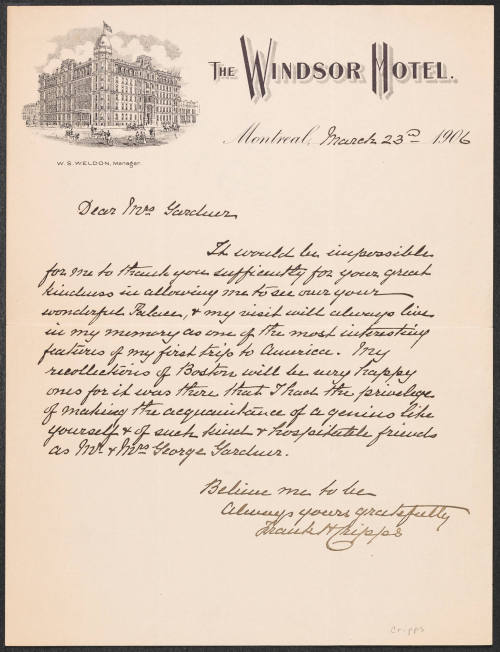 THE WINDSOR HOTEL.
Montreal, March 23rd 1906
W. S. WELDON, Manager.
Dear Mrs Gardner
It would be impossible
for me to thank you sufficiently for your great
kindness in allowing me to see over your
wonderful Palace, & my visit will always live
in my memory as one of the most interesting
features of my first trip to America. My
recollections of Boston will be very happy
ones for it was there that I had the privilege
of making the acquaintance of a genius like
yourself & of such kind & hospitable friends
as Mr & Mrs George Gardner.
Believe me to be
Always yours gratefully
Frank H Cripps
Cripps